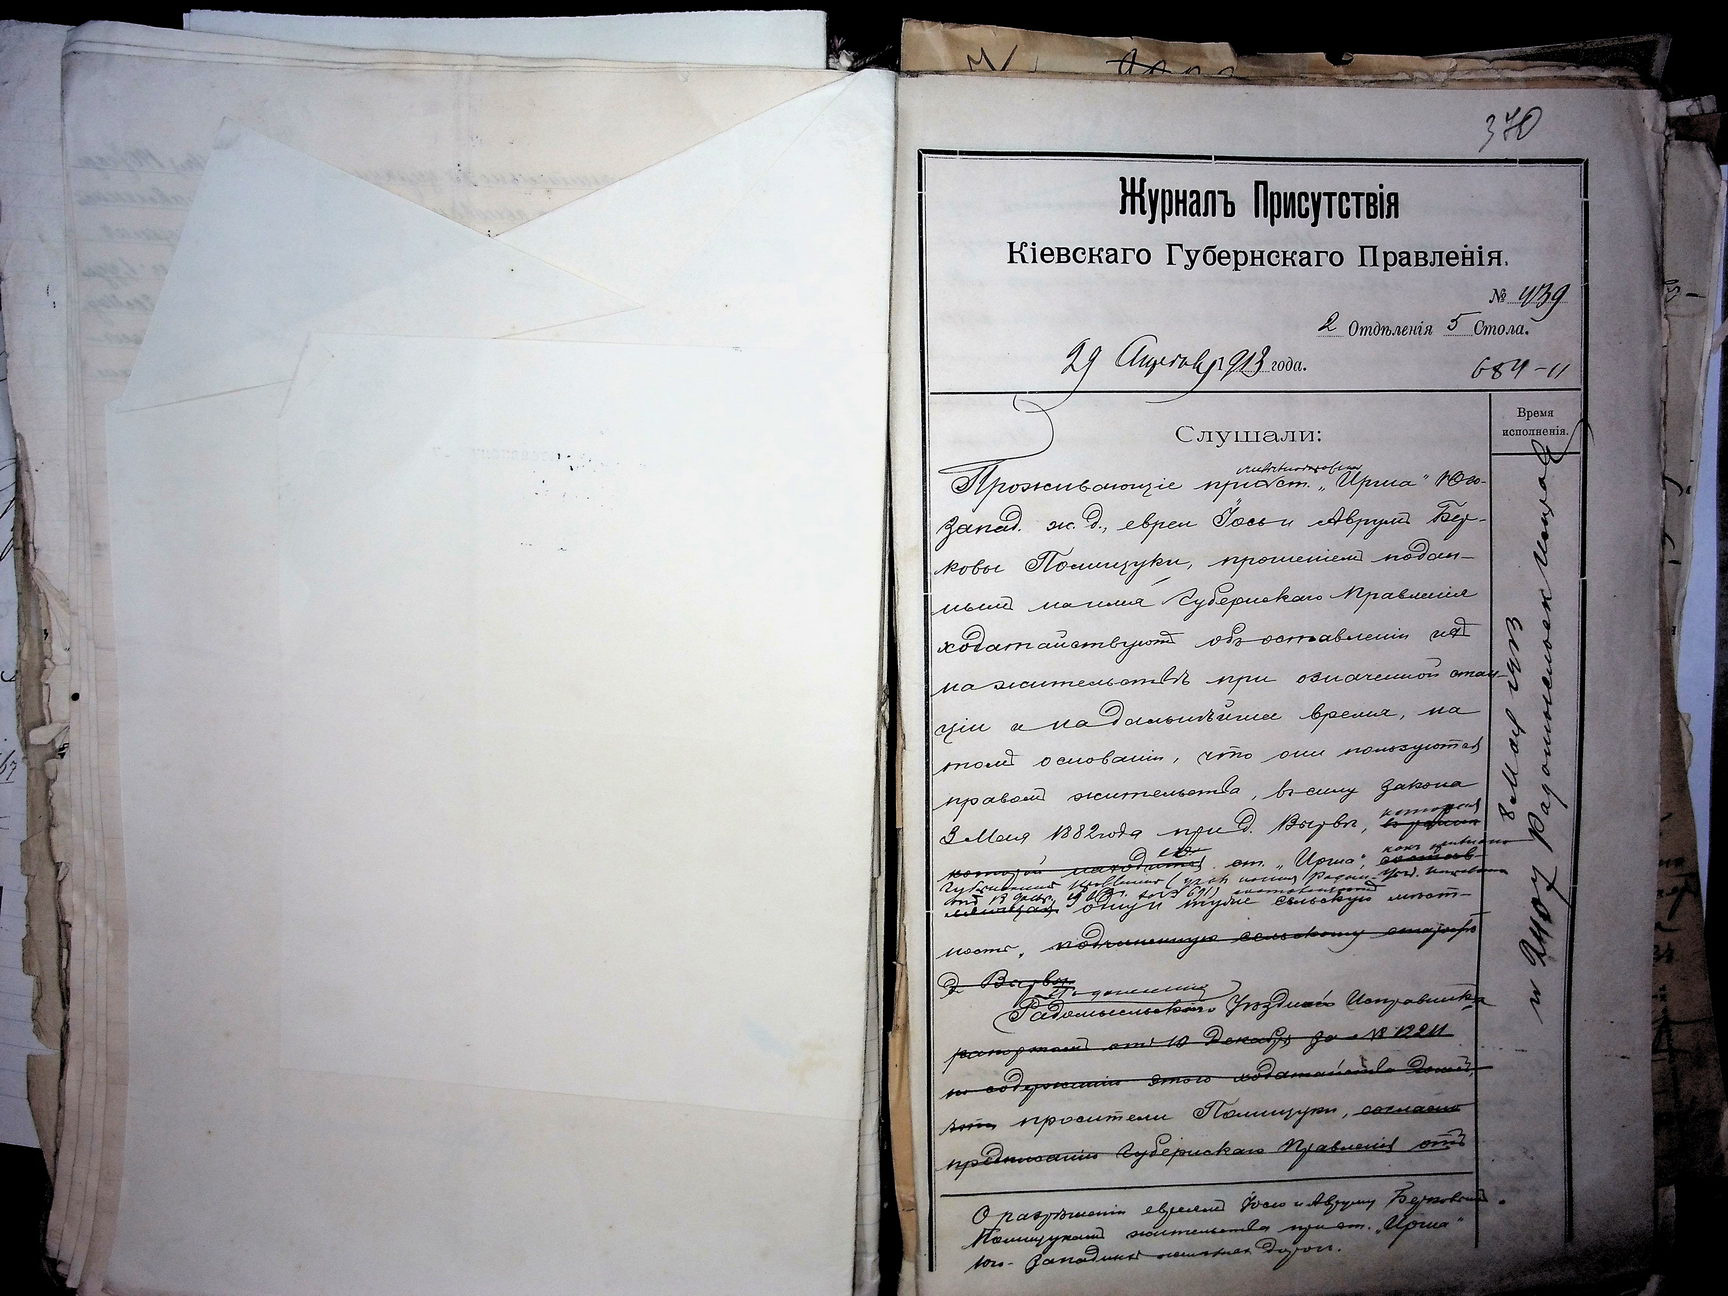 370
Журналъ Присутствія
Кіевскаго Губернскаго Правленія.
№ 439
2 Отдѣленія 5 Стола.
29 Апрѣля 1913 года.
684-11
Слушали:
Время
исполненія.
Проживающіе при ст. „Ирша" Юго-
Запад. ж. д., евреи Іось и Аврумъ Бер-
ковы Полищуки, прошеніемъ подан-
нымъ на имя Губернскаго Правленія
ходатайствуютъ объ оставленіи ихъ
на жительствѣ при означенной стан-
ціи и на дальнѣйшее время, на
томъ основаніи, что они пользуются
правомъ жительства, въ силу закона
3 Мая 1882 года при д. Вырвѣ,
которой находится ст. „Ирша",
одну и туже сельскую мѣст-
ность, подчиненную сельскому старостѣ
д. Вырвы
По донесенію
Радомысльскаго Уѣзднаго Исправника
рапортомъ отъ 10 Декабря за № 12211
по содержанію этого ходатайства
просители Полищуки, согласно
предписанію Губернскаго Правленія отъ
О разрѣшеніи евреямъ Іосю и Авруму Берковымъ
Полищукамъ жительства при ст. „Ирша"
Юго-Западныхъ желѣзныхъ дорогъ.
8 Мая 1913
№ 2407